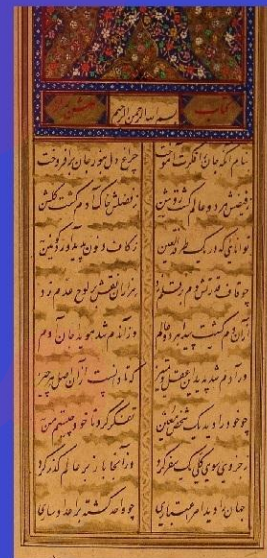 کتاب بسم الله الرحمن الرحیم گلشن راز
بنام آنکه جان را فکرت آموخت چراغ دل بنور جان برافروخت
زفیضش هر دو عالم گشت روشن زفضلش خاک آدم گشت گلشن
توانایی که در یک طرفة العین زکاف و نون پدید آورد کونین
چو قاف قدرتش دم بر قلم زد هزاران نقش بر لوح عدم زد
از آن دم گشت پیدا هر دو عالم وز آن دم شد هویدا جان آدم
در آدم شد پدید این عقل و تمییز که تا دانست از آن اصل هر چیز
چو خود را دید یک شخص معین تفکر کرد تا خود چیستم من
ز جزوی سوی کلی یک سفر کرد وز آنجا باز بر عالم گذر کرد
جهان را دید امر اعتباری چو واحد گشته در اعداد ساری